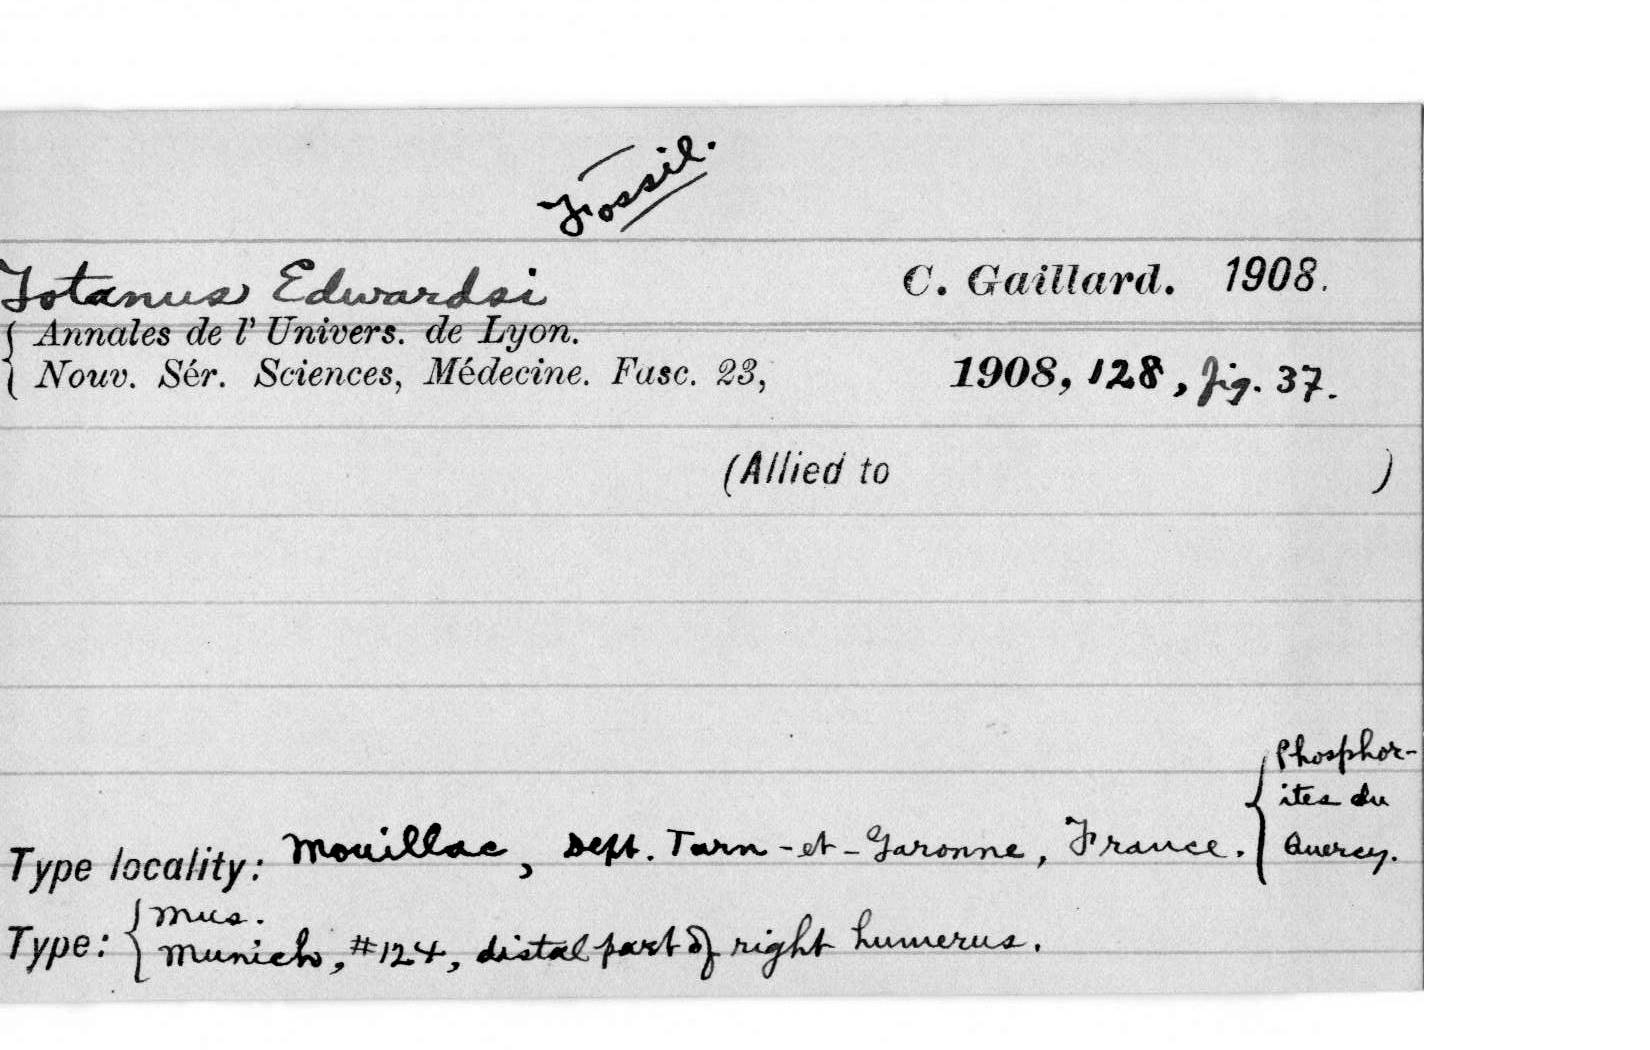 Fossil.
Totanus Edwardsi C. Gaillard. 1908.
{ Annales de l' Univers. de Lyon.
Nouv. Sér. Sciences, Médecine. Fasc. 23, 1908, 128, fig. 37.
(Allied to )
Type locality: Mouillac, Dept. Tarn-et-Garonne, France. { Phosphor-
ites du
Quercy.
Type: { Mus.
Munich, #124, distal part of right humerus.